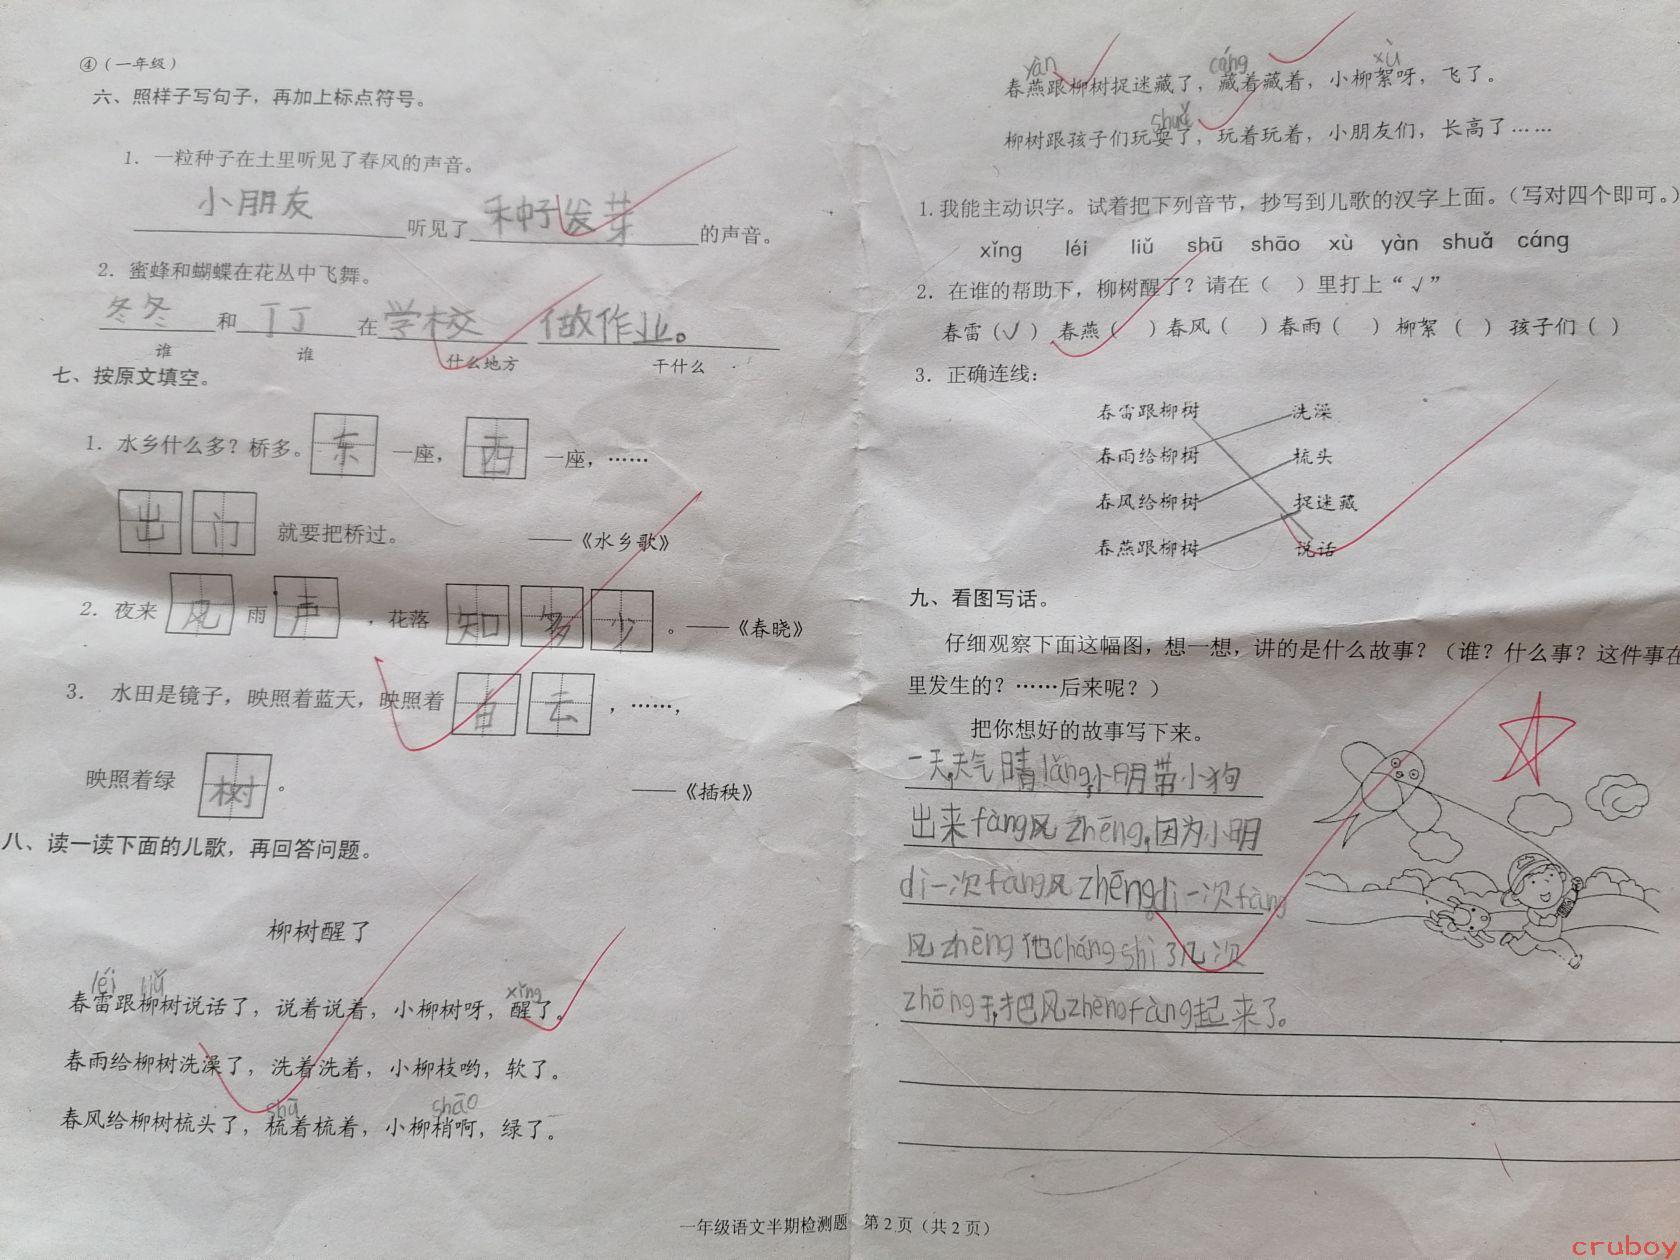 ④（一年级）
六、照样子写句子，再加上标点符号。
1．一粒种子在土里听见了春风的声音。
小朋友听见了种子发芽的声音。
2．蜜蜂和蝴蝶在花丛中飞舞。
冬冬和丁丁在学校做作业。
谁 谁 什么地方 干什么
七、按原文填空。
1．水乡什么多？桥多。东一座，西一座，……
出门就要把桥过。 ——《水乡歌》
2．夜来风雨声，花落知多少。——《春晓》
3． 水田是镜子，映照着蓝天，映照着白云，……，
映照着绿树。 ——《插秧》
八、读一读下面的儿歌，再回答问题。
柳树醒了
léi liǔ xǐng
春雷跟柳树说话了，说着说着，小柳树呀，醒了。
春雨给柳树洗澡了，洗着洗着，小柳枝哟，软了。
shū shāo
春风给柳树梳头了，梳着梳着，小柳梢啊，绿了。
yàn cáng xù
春燕跟柳树捉迷藏了，藏着藏着，小柳絮呀，飞了。
shuǎ
柳树跟孩子们玩耍了，玩着玩着，小朋友们，长高了……
1.我能主动识字。试着把下列音节，抄写到儿歌的汉字上面。（写对四个即可。）
xǐng léi liǔ shū shāo xù yàn shuǎ cáng
2．在谁的帮助下，柳树醒了？请在（ ）里打上“√”
春雷（√） 春燕（ ）春风（ ）春雨（ ） 柳絮（ ）孩子们（ ）
3．正确连线：
春雷跟柳树 洗澡
春雨给柳树 梳头
春风给柳树 捉迷藏
春燕跟柳树 说话
九、看图写话。
仔细观察下面这幅图，想一想，讲的是什么故事？（谁？什么事？这件事在
里发生的？……后来呢？）
把你想好的故事写下来。
一天,天气晴lǎng,小明带小狗
出来fàng风zhēng,因为小明
dì一次fàng风zhēng。dì一次fàng
风zhēng他chángshì了几次
zhōng于,把风zhēngfàng起来了。
一年级语文半期检测题 第2页（共2页）
cruboy